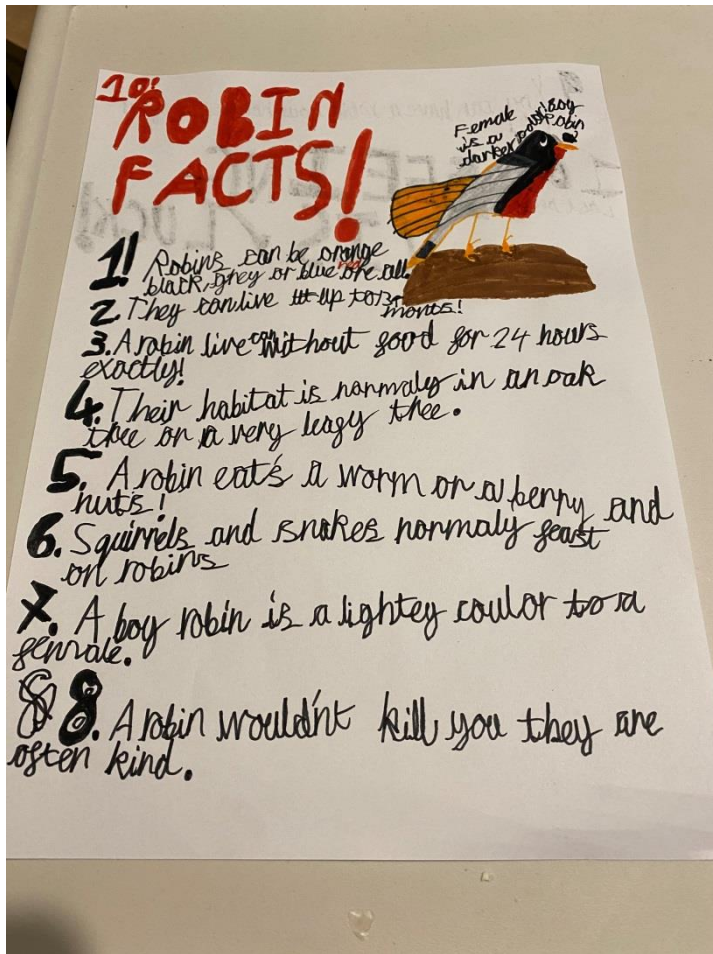 10
ROBIN
FACTS!
Female
is a
darker
Boy
Robin
1! Robins can be orange
black, grey or blue or red all
2. They can live up to
monts!
3. A robin live can without food for 24 hours
exactly!
4. Their habitat is normaly in an oak
thee or a very leagy thee.
5. A robin eat's a worm or a berry and
nuts!
6. Squirrels and snakes normaly feast
on robins
7. A boy robin is a lightey coulor to a
female.
8 8. A robin would'nt kill you they are
often kind.